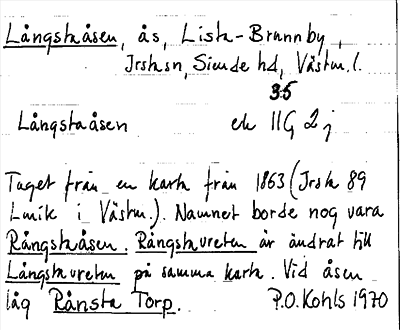 Långstaåsen, ås, Lista-Brunnby,
Irstasn, Siende hd, Västm.l.
35
Långstaåsen ek 11G 2j
Taget från en karta från 1863 (Irsta 89
Lmik i Västm.). Namnet borde nog vara
Rångstaåsen. Rångstavreten är ändrat till
Långstavreten på samma karta. Vid åsen
låg Rånsta Torp. P.O. Kohls 1970